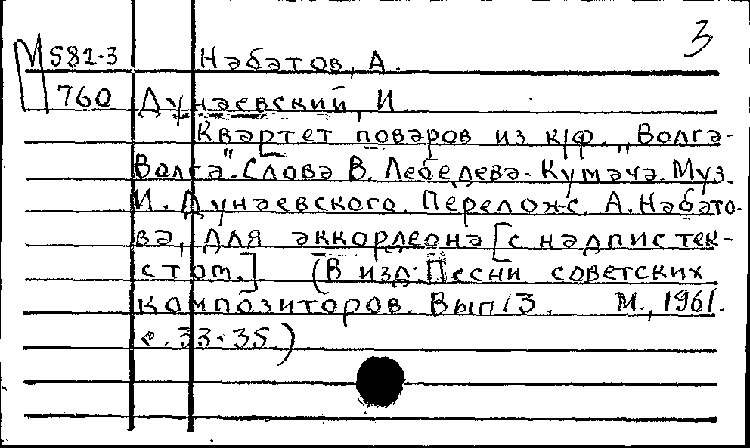 3
М 581-3 Набатов, А.
760 Дунаевский, И
Квартет поваров из к/ф. „Волга-
Волга". Слова В. Лебедева-Кумача. Муз.
И. Дунаевского. Перелож. А. Набато-
ва, для аккордеона [с надпис тек-
стом.] (В изд: Песни советских
композиторов. Вып 13. М., 1961.
с. 33-35)